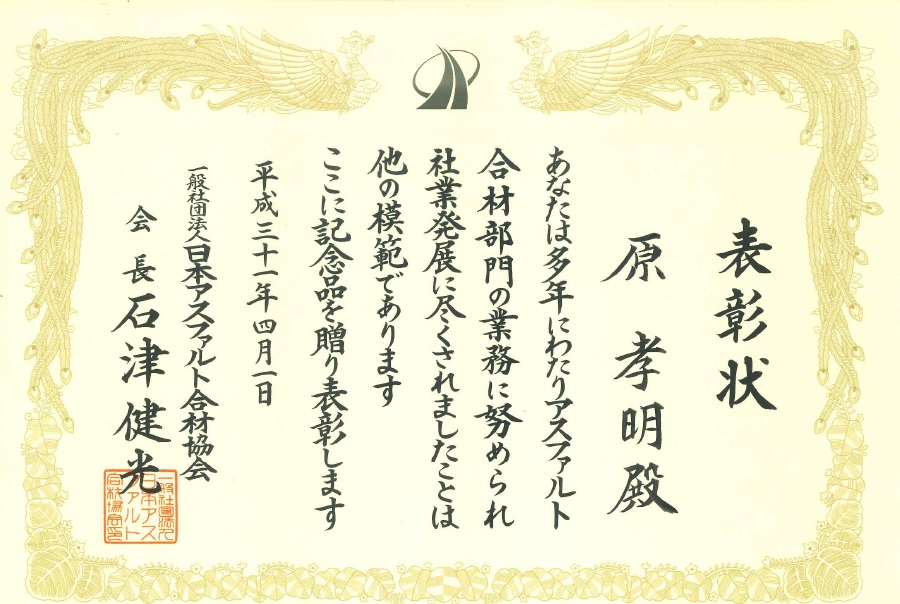 表彰状
原孝明殿
あなたは多年にわたりアスファルト
合材部門の業務に努められ
社業発展に尽くされましたことは
他の模範であります
ここに記念品を贈り表彰します
平成三十一年四月一日
一般社団法人日本アスファルト合材協会
会長石津健光
一般社団法人
日本アス
ファルト
合材協会印